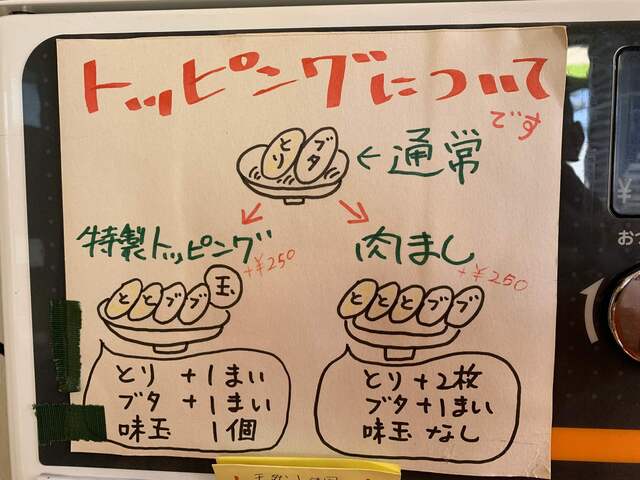 トッピングについて
です
とり ブタ ←通常
特製トッピング +¥250
肉まし +¥250
と と ブ ブ 玉
と と と ブ ブ
とり +1まい
ブタ +1まい
味玉 1個
とり +2枚
ブタ +1まい
味玉 なし
¥